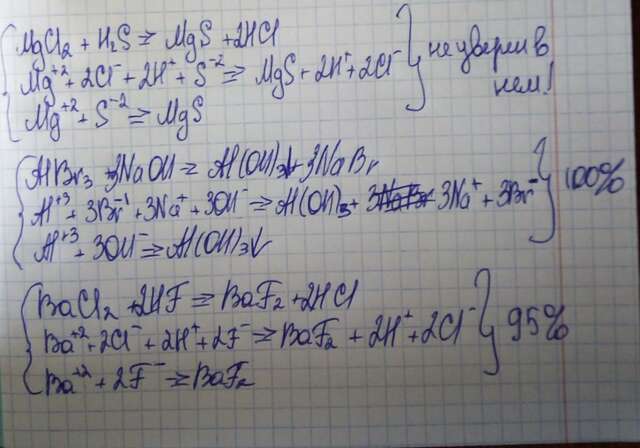 MgCl₂ + H₂S ⇒ MgS + 2HCl
Mg⁺² + 2Cl⁻ + 2H⁺ + S⁻² ⇒ MgS + 2H⁺ + 2Cl⁻
Mg⁺² + S⁻² ⇒ MgS
не уверен в
нем!
AlBr₃ + 3NaOH = Al(OH)₃↓ + 3NaBr
Al⁺³ + 3Br⁻¹ + 3Na⁺ + 3OH⁻ ⇒ Al(OH)₃ + 3Na⁺ + 3Br⁻
Al⁺³ + 3OH⁻ ⇒ Al(OH)₃↓
100%
BaCl₂ + 2HF ⇒ BaF₂ + 2HCl
Ba⁺² + 2Cl⁻ + 2H⁺ + 2F⁻ ⇒ BaF₂ + 2H⁺ + 2Cl⁻
Ba⁺² + 2F⁻ ⇒ BaF₂
95%